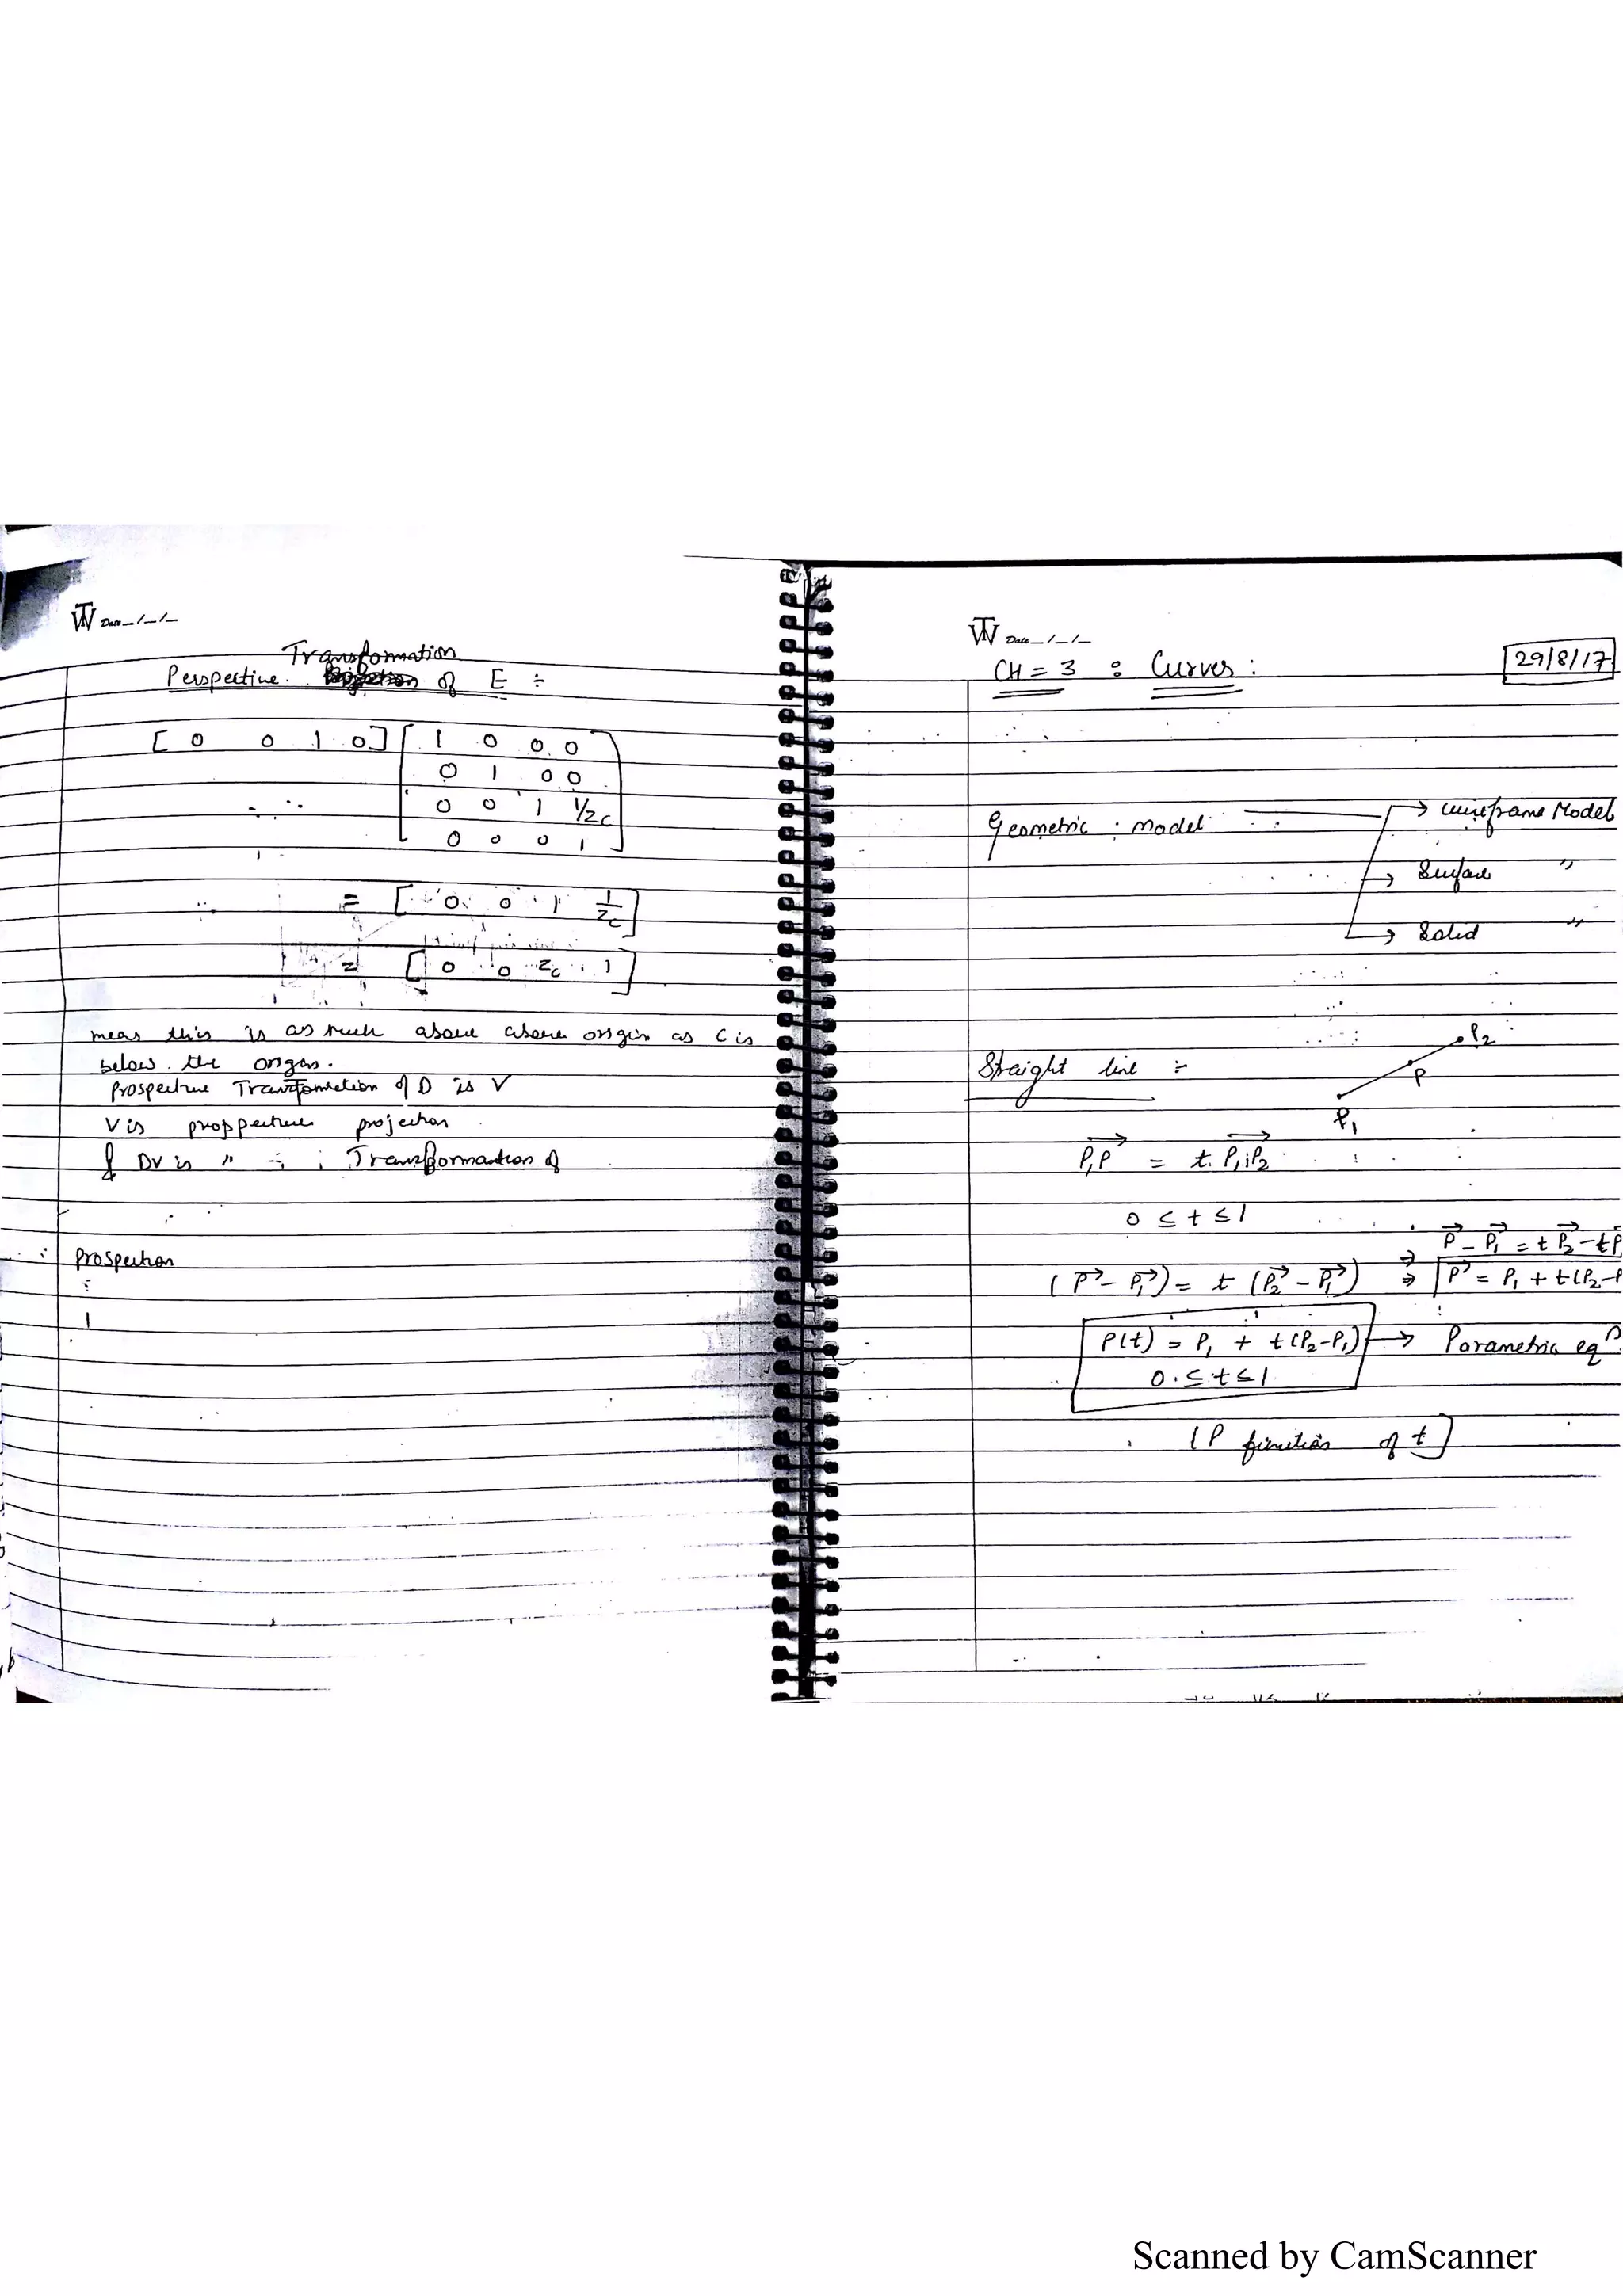 TW Date _/_/_
Transformation
Perspective of E ÷
[ 0 0 1 0 ] [ 1 0 0 0
0 1 0 0
0 0 1 1/zc
0 0 0 1 ]
= [ 0 0 1 1/zc ]
= [ 0 0 zc 1 ]
meas this is as much above above origin as C is
below the origin.
prospective Transformation of D is V
V is projection
& DV is " ÷ Transformation of
∴ prospection
:
1
TW Date _/_/_
CH = 3 : Curves :
29/8/17
Geometric model → wireframe Model
→ Surface "
→ Solid "
P2
Straight line ÷
P
P1
P1P = t. P1P2
0 ≤ t ≤ 1
⇒ P - P1 = t P2 - t P
(P - P1) = t (P2 - P1) ⇒ P = P1 + t(P2 - P
P(t) = P1 + t(P2-P1) → Parametric eqn
0 ≤ t ≤ 1
[P function of t]
Scanned by CamScanner